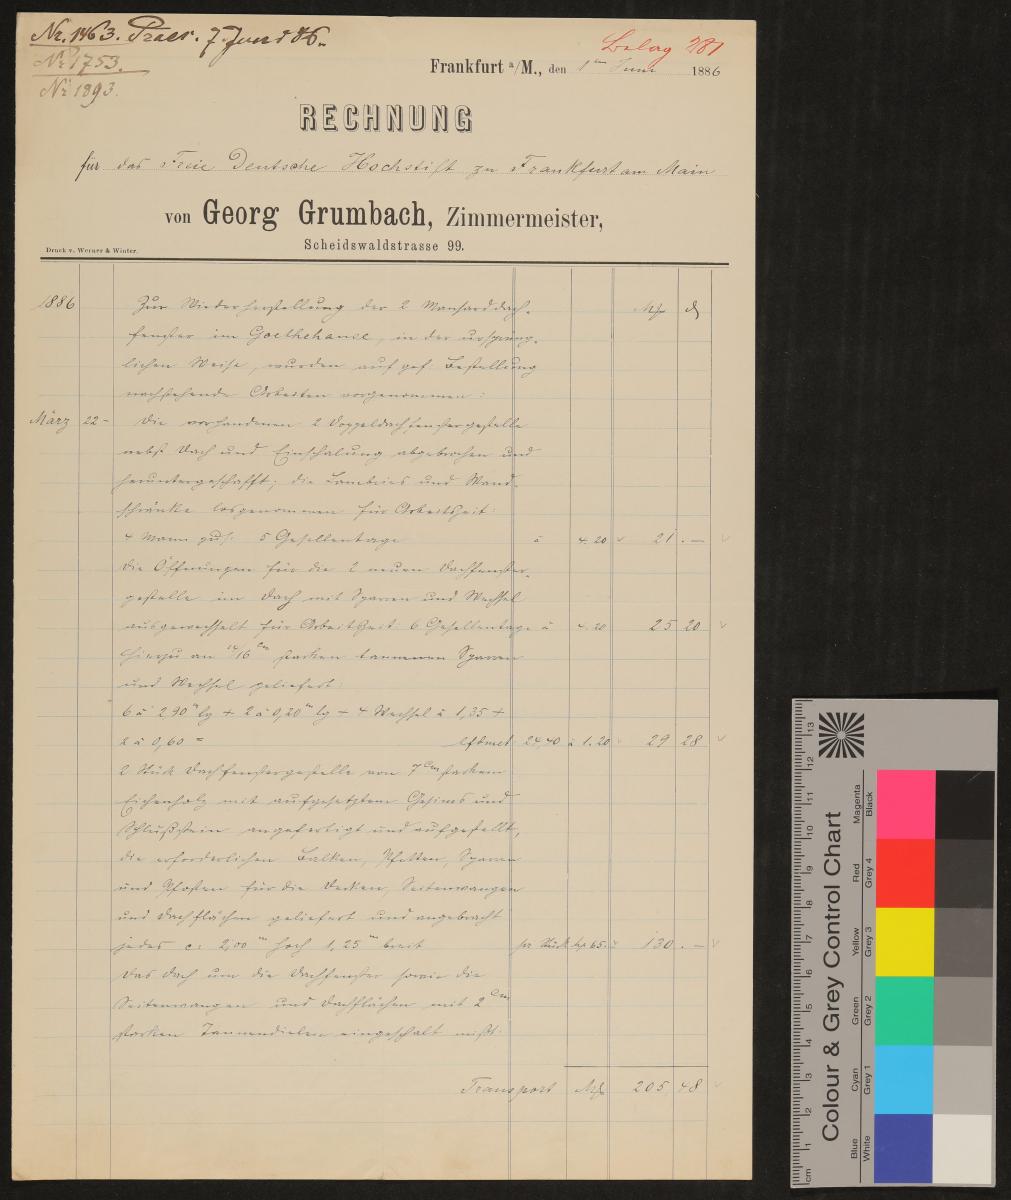 Nr. 1463. Praes. 7. Juni 86.
Nr 1753.
Nr 1893.
Belag 281
Frankfurt a/M., den 1ten Juni 1886
RECHNUNG
für das Freie Deutsche Hochstift zu Frankfurt am Main
von Georg Grumbach, Zimmermeister,
Scheidswaldstrasse 99.
Druck v. Werner & Winter.
1886 Zur Wiederherstellung der 2 Mansarddach- Mk d
fenster im Goethehause, in der ursprüng-
lichen Weise, wurden auf gef. Bestellung
nachstehende Arbeiten vorgenommen:
März 22 - Die vorhandenen 2 Doppeldachfenstergestelle
nebst Dach und Einschalung abgebrochen und
heruntergeschafft; die Lambries und Wand-
schränke losgenommen für Arbeitszeit:
4 Mann zus. 5 Gesellentage à 4.20 21.—
Die Öffnungen für die 2 neuen Dachfenster-
gestelle im Dach mit Sparren und Wechsel
ausgewechselt für Arbeitszeit 6 Gesellentage à 4.20 25 20
Hierzu an 14/16 cm starken tannenen Sparren
und Wechsel geliefert:
6 à 2,90 m lg + 2 à 0,20 m lg + 4 Wechsel à 1,35 +
2 à 0,60 = lfdmet 24,40 à 1.20 29 28
2 Stück Dachfenstergestelle von 7 cm starkem
Eichenholz mit aufgesetztem Gesims und
Schlußstein angefertigt und aufgestellt,
die erforderlichen Balken, Pfetten, Sparren
und Pfosten für die Decken, Seitenwangen
und Dachflächen geliefert und angebracht
jedes c: 2,00 m hoch 1,25 m breit pr Stück Mk 65.- 130.—
Das Dach um die Dachfenster sowie die
Seitenwangen und Dachflächen mit 2 cm
starken Tannendielen eingeschalt mißt:
Transport Mk 205,48
cm 1 2 3 4 5 6 7 8 9 10 11 12 13
Colour & Grey Control Chart
Blue Cyan Green Yellow Red Magenta
White Grey 1 Grey 2 Grey 3 Grey 4 Black